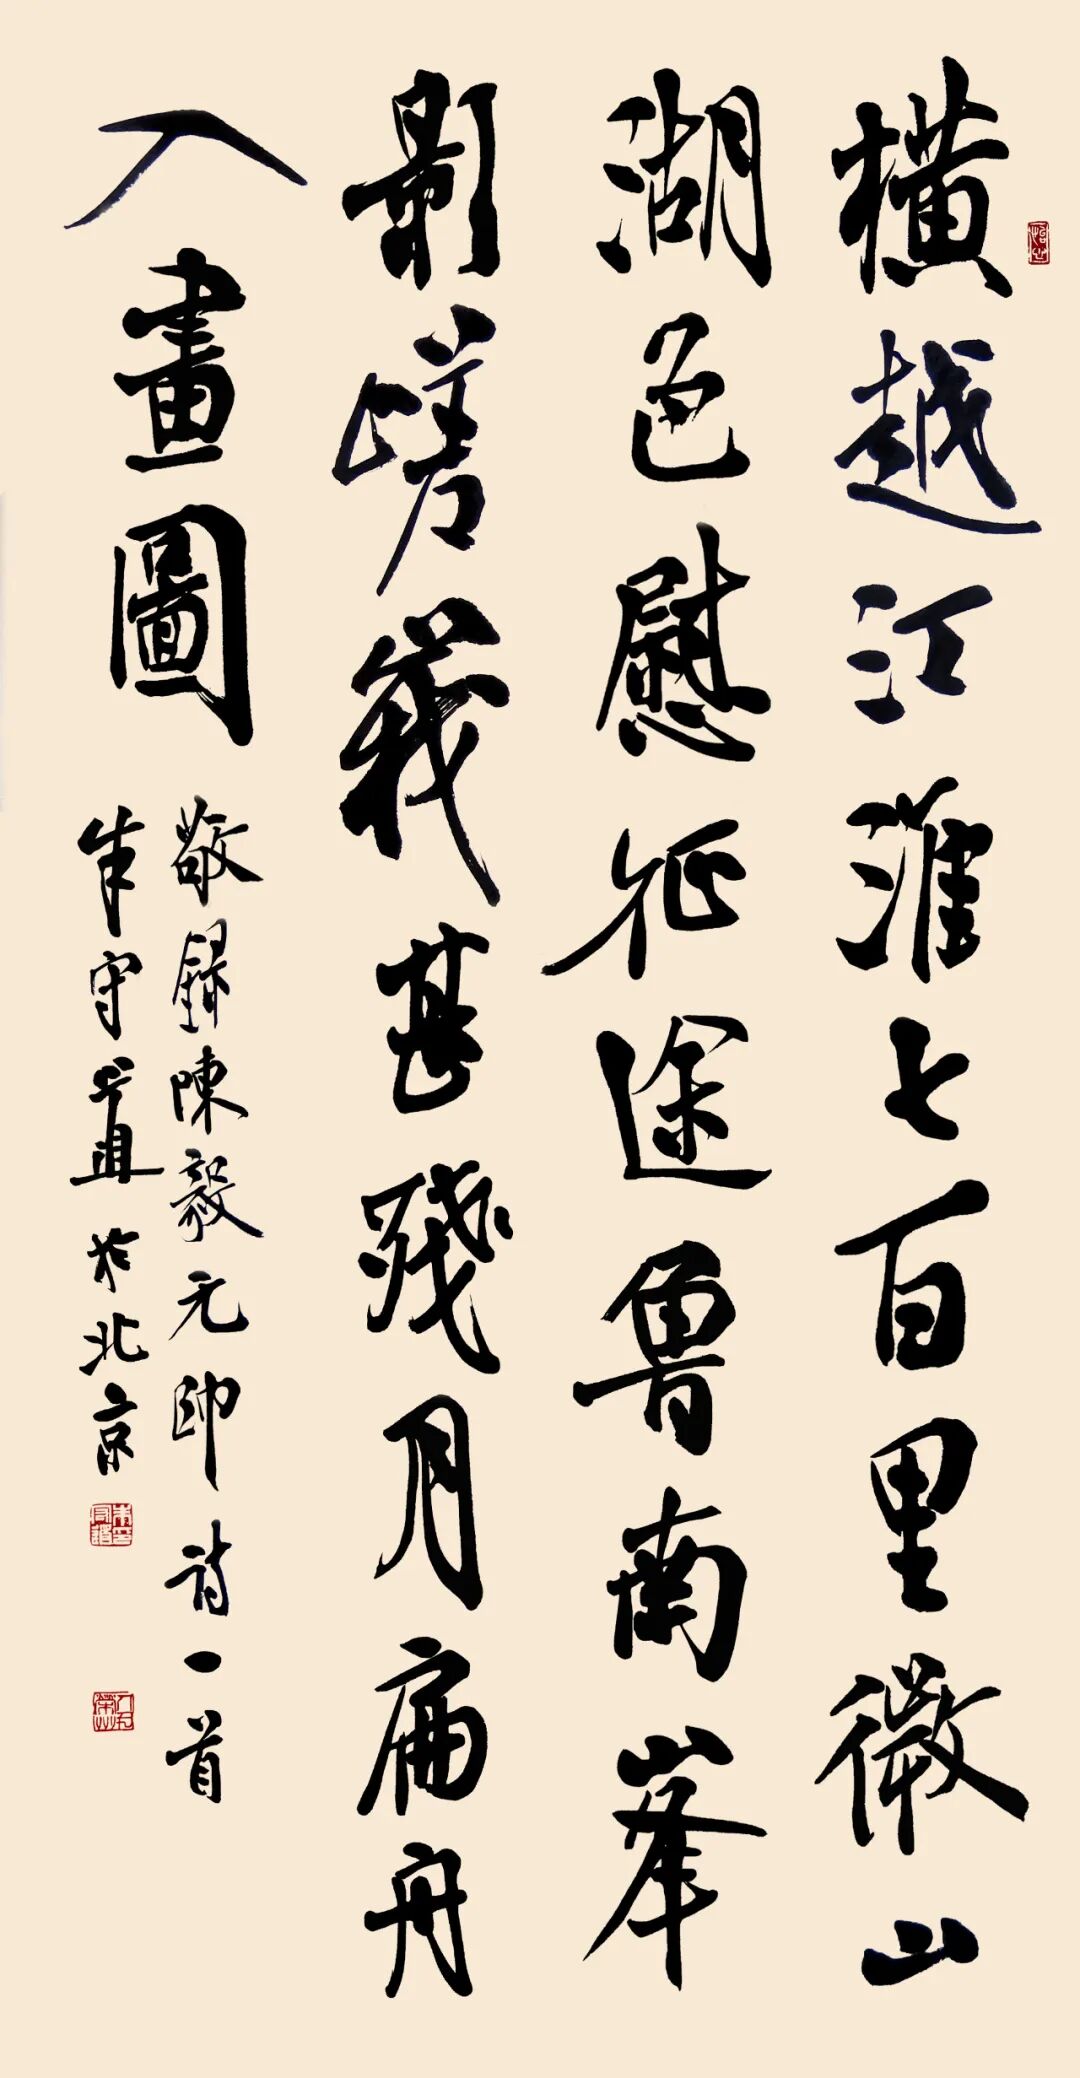 橫越江淮七百里微山
湖色慰征途魯南峯
影嵯峨甚殘月扁舟
入畫圖
敬錄陳毅元帥詩一首
朱守道於北京